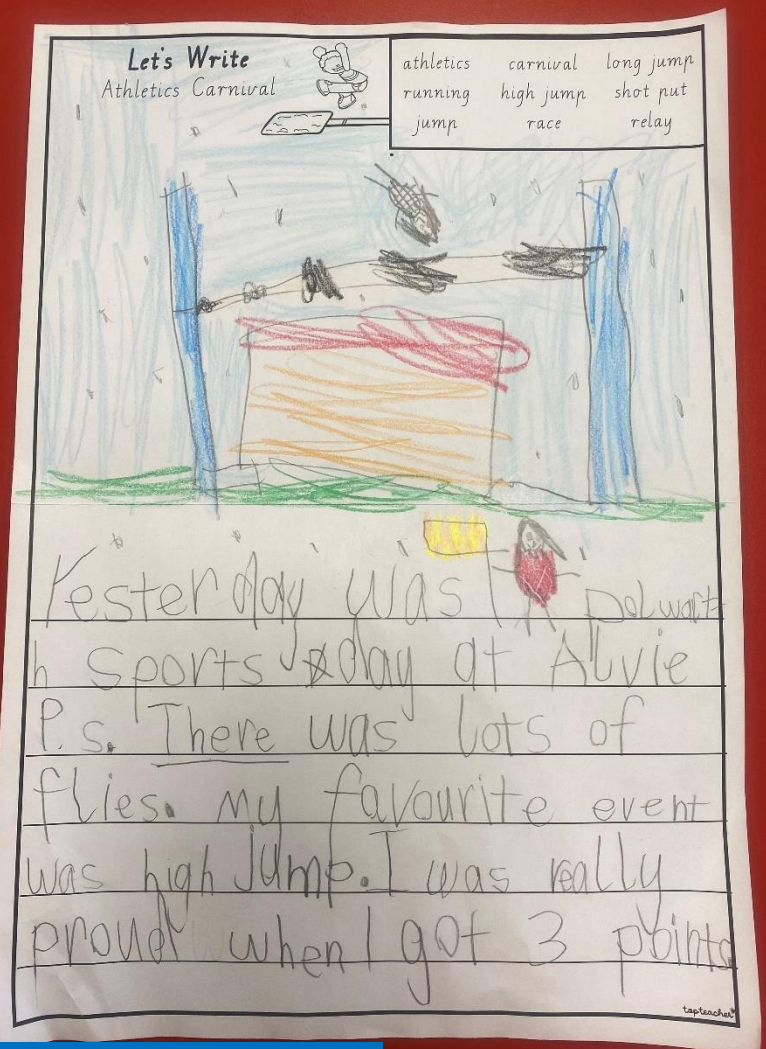 Let's Write
Athletics Carnival
athletics carnival long jump
running high jump shot put
jump race relay
Yesterday was Polwart
h sports day at Alvie
P.s. There was lots of
flies. My favourite event
was high jump. I was really
proud when I got 3 points
tapteacher